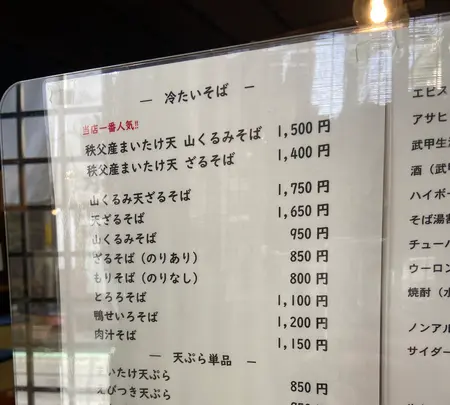 — 冷たいそば —
当店一番人気!!
秩父産まいたけ天 山くるみそば 1,500 円
秩父産まいたけ天 ざるそば 1,400 円
山くるみ天ざるそば 1,750 円
天ざるそば 1,650 円
山くるみそば 950 円
ざるそば（のりあり） 850 円
もりそば（のりなし） 800 円
とろろそば 1,100 円
鴨せいろそば 1,200 円
肉汁そば 1,150 円
— 天ぷら単品 —
まいたけ天ぷら 850 円
えびつき天ぷら
エビス
アサヒ
武甲生
酒（武
ハイボ
そば湯
チュー
ウーロン
焼酎（
ノンアル
サイダー